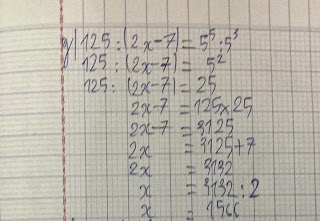 y) 125 : (2x-7) = 5⁵ : 5³
125 : (2x-7) = 5²
125 : (2x-7) = 25
2x-7 = 125x25
2x-7 = 3125
2x = 3125+7
2x = 3132
x = 3132 : 2
x = 1566